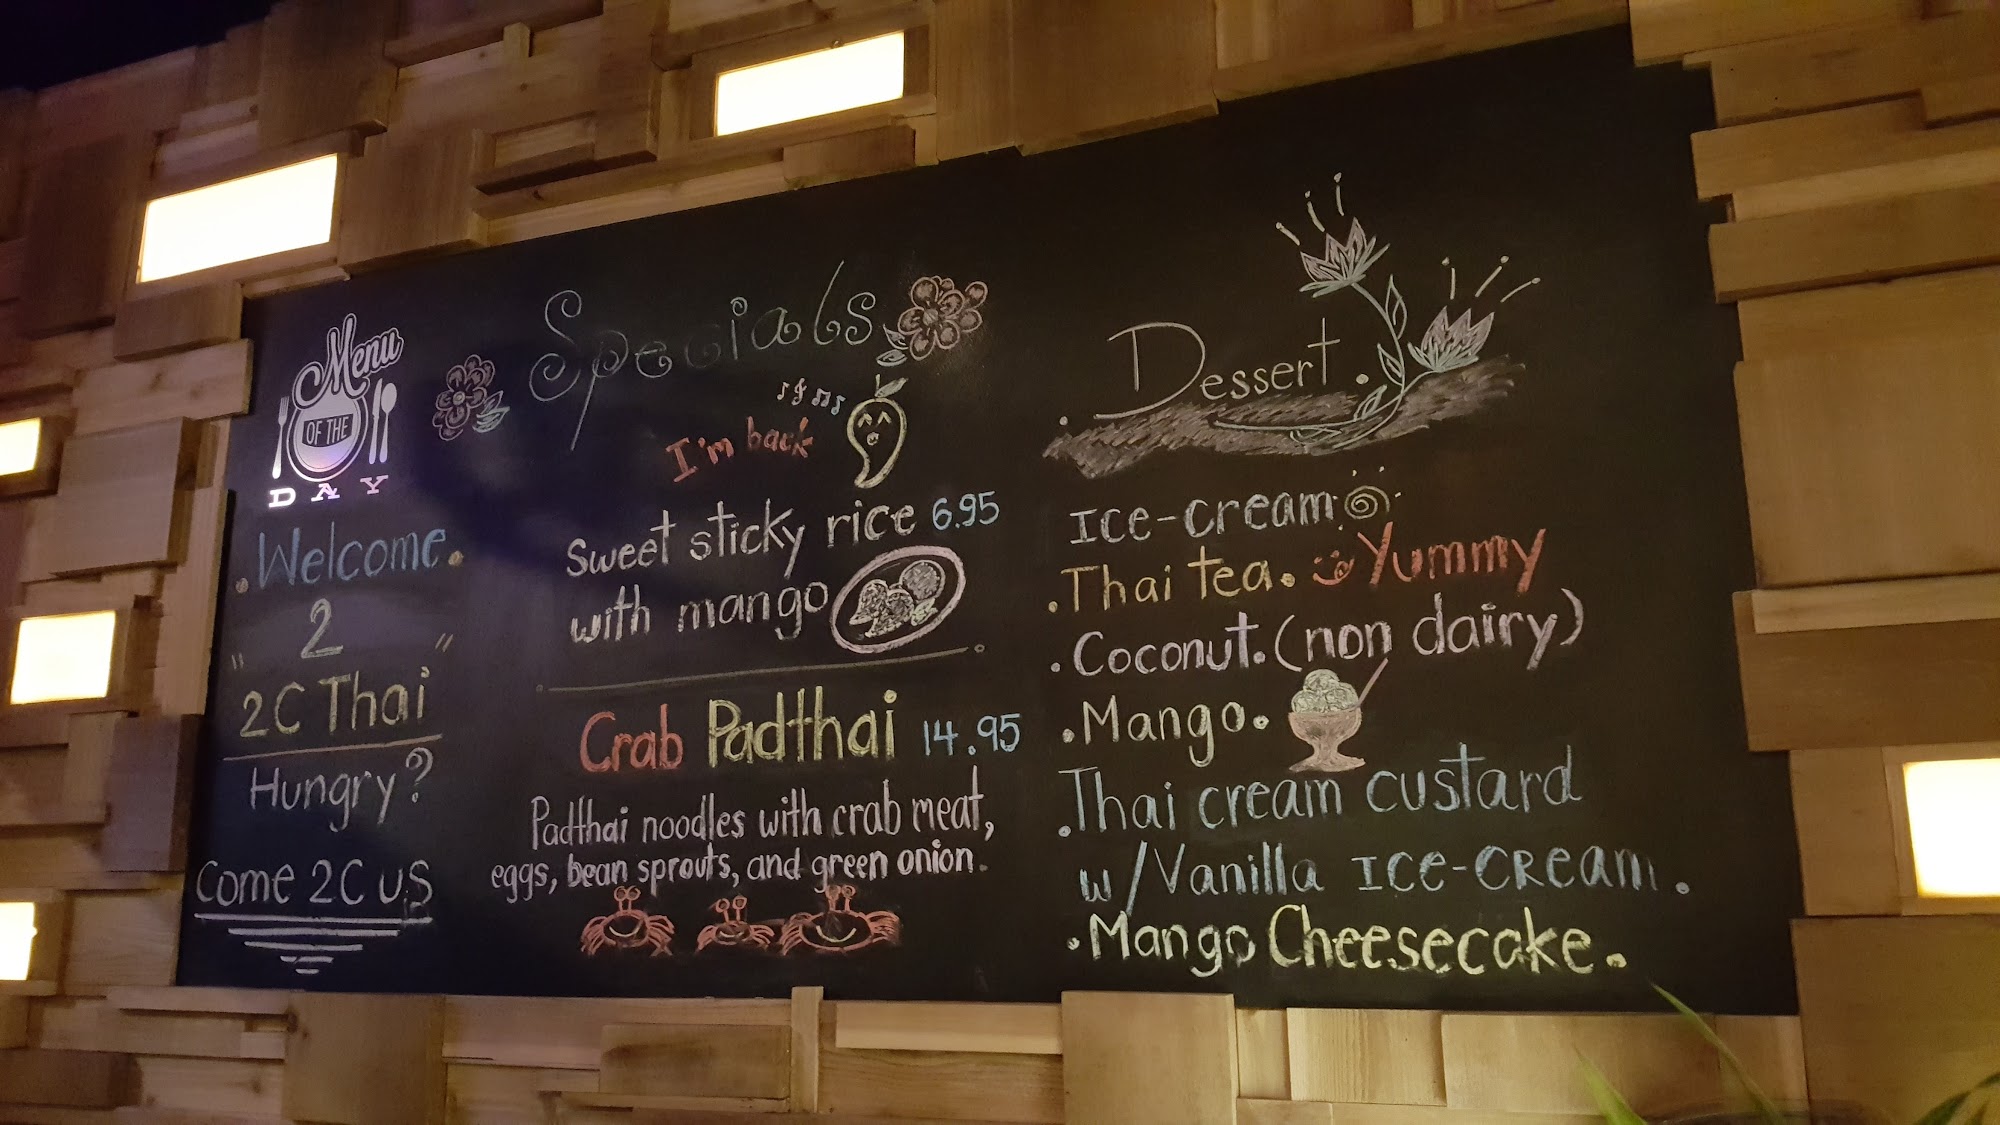 Menu
OF THE
DAY
.Welcome.
2
"2C Thai"
Hungry?
Come 2C US
Specials
I'm back
Sweet sticky rice 6.95
with mango
Crab Padthai 14.95
Padthai noodles with crab meat,
eggs, bean sprouts, and green onion.
.Dessert.
Ice-cream
.Thai tea. Yummy
.Coconut.(non dairy)
.Mango.
.Thai cream custard
w/Vanilla ICE-CREAM.
.Mango Cheesecake.